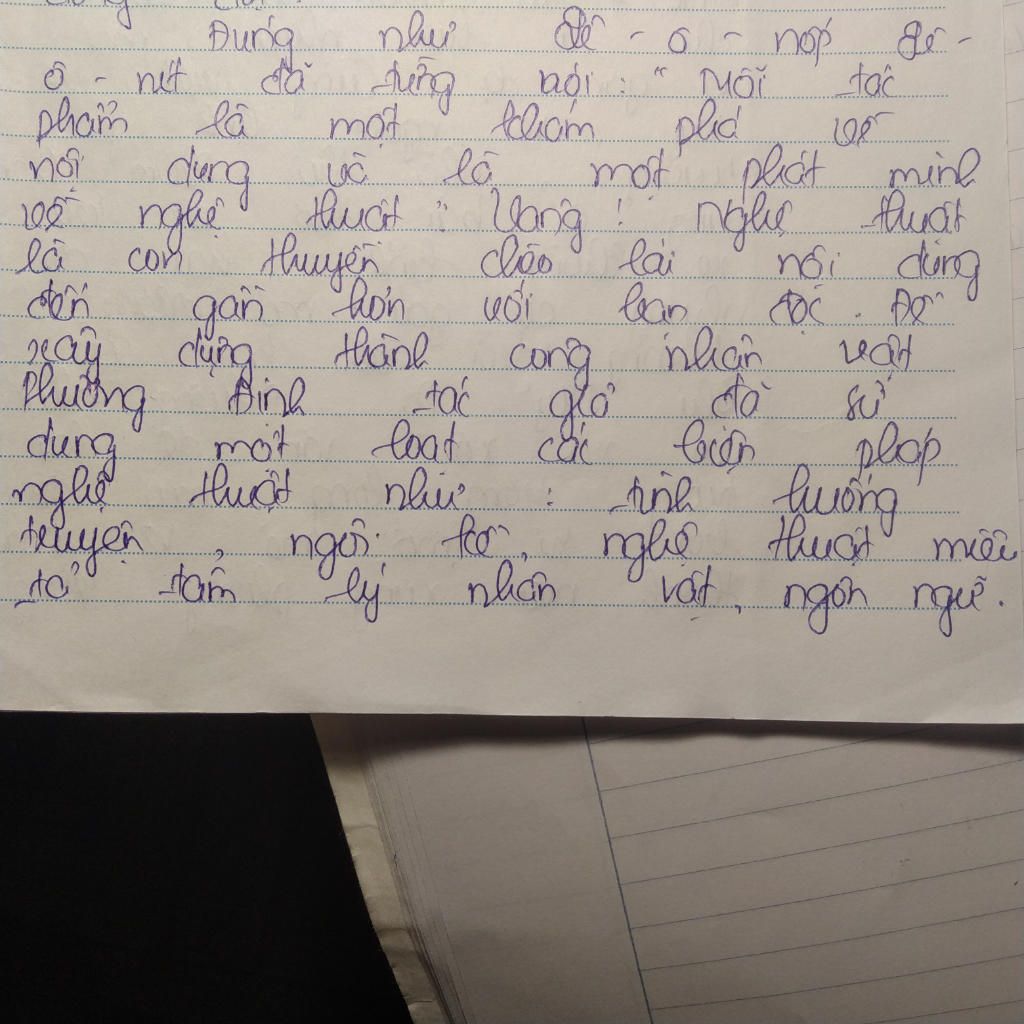 Đúng như Lê - ô - nóp Lê -
ô - nít đã từng nói : " Mỗi tác
phẩm là một khám phá về
nội dung và là một phát minh
về nghệ thuật ". Vâng ! Nghệ thuật
là con thuyền chèo lái nội dung
đến gần hơn với bạn đọc . Để
xây dựng thành công nhân vật
Phương Định tác giả đã sử
dụng một loạt các biện pháp
nghệ thuật như : tình huống
truyện , ngôi kể , nghệ thuật miêu
tả tâm lý nhân vật , ngôn ngữ .